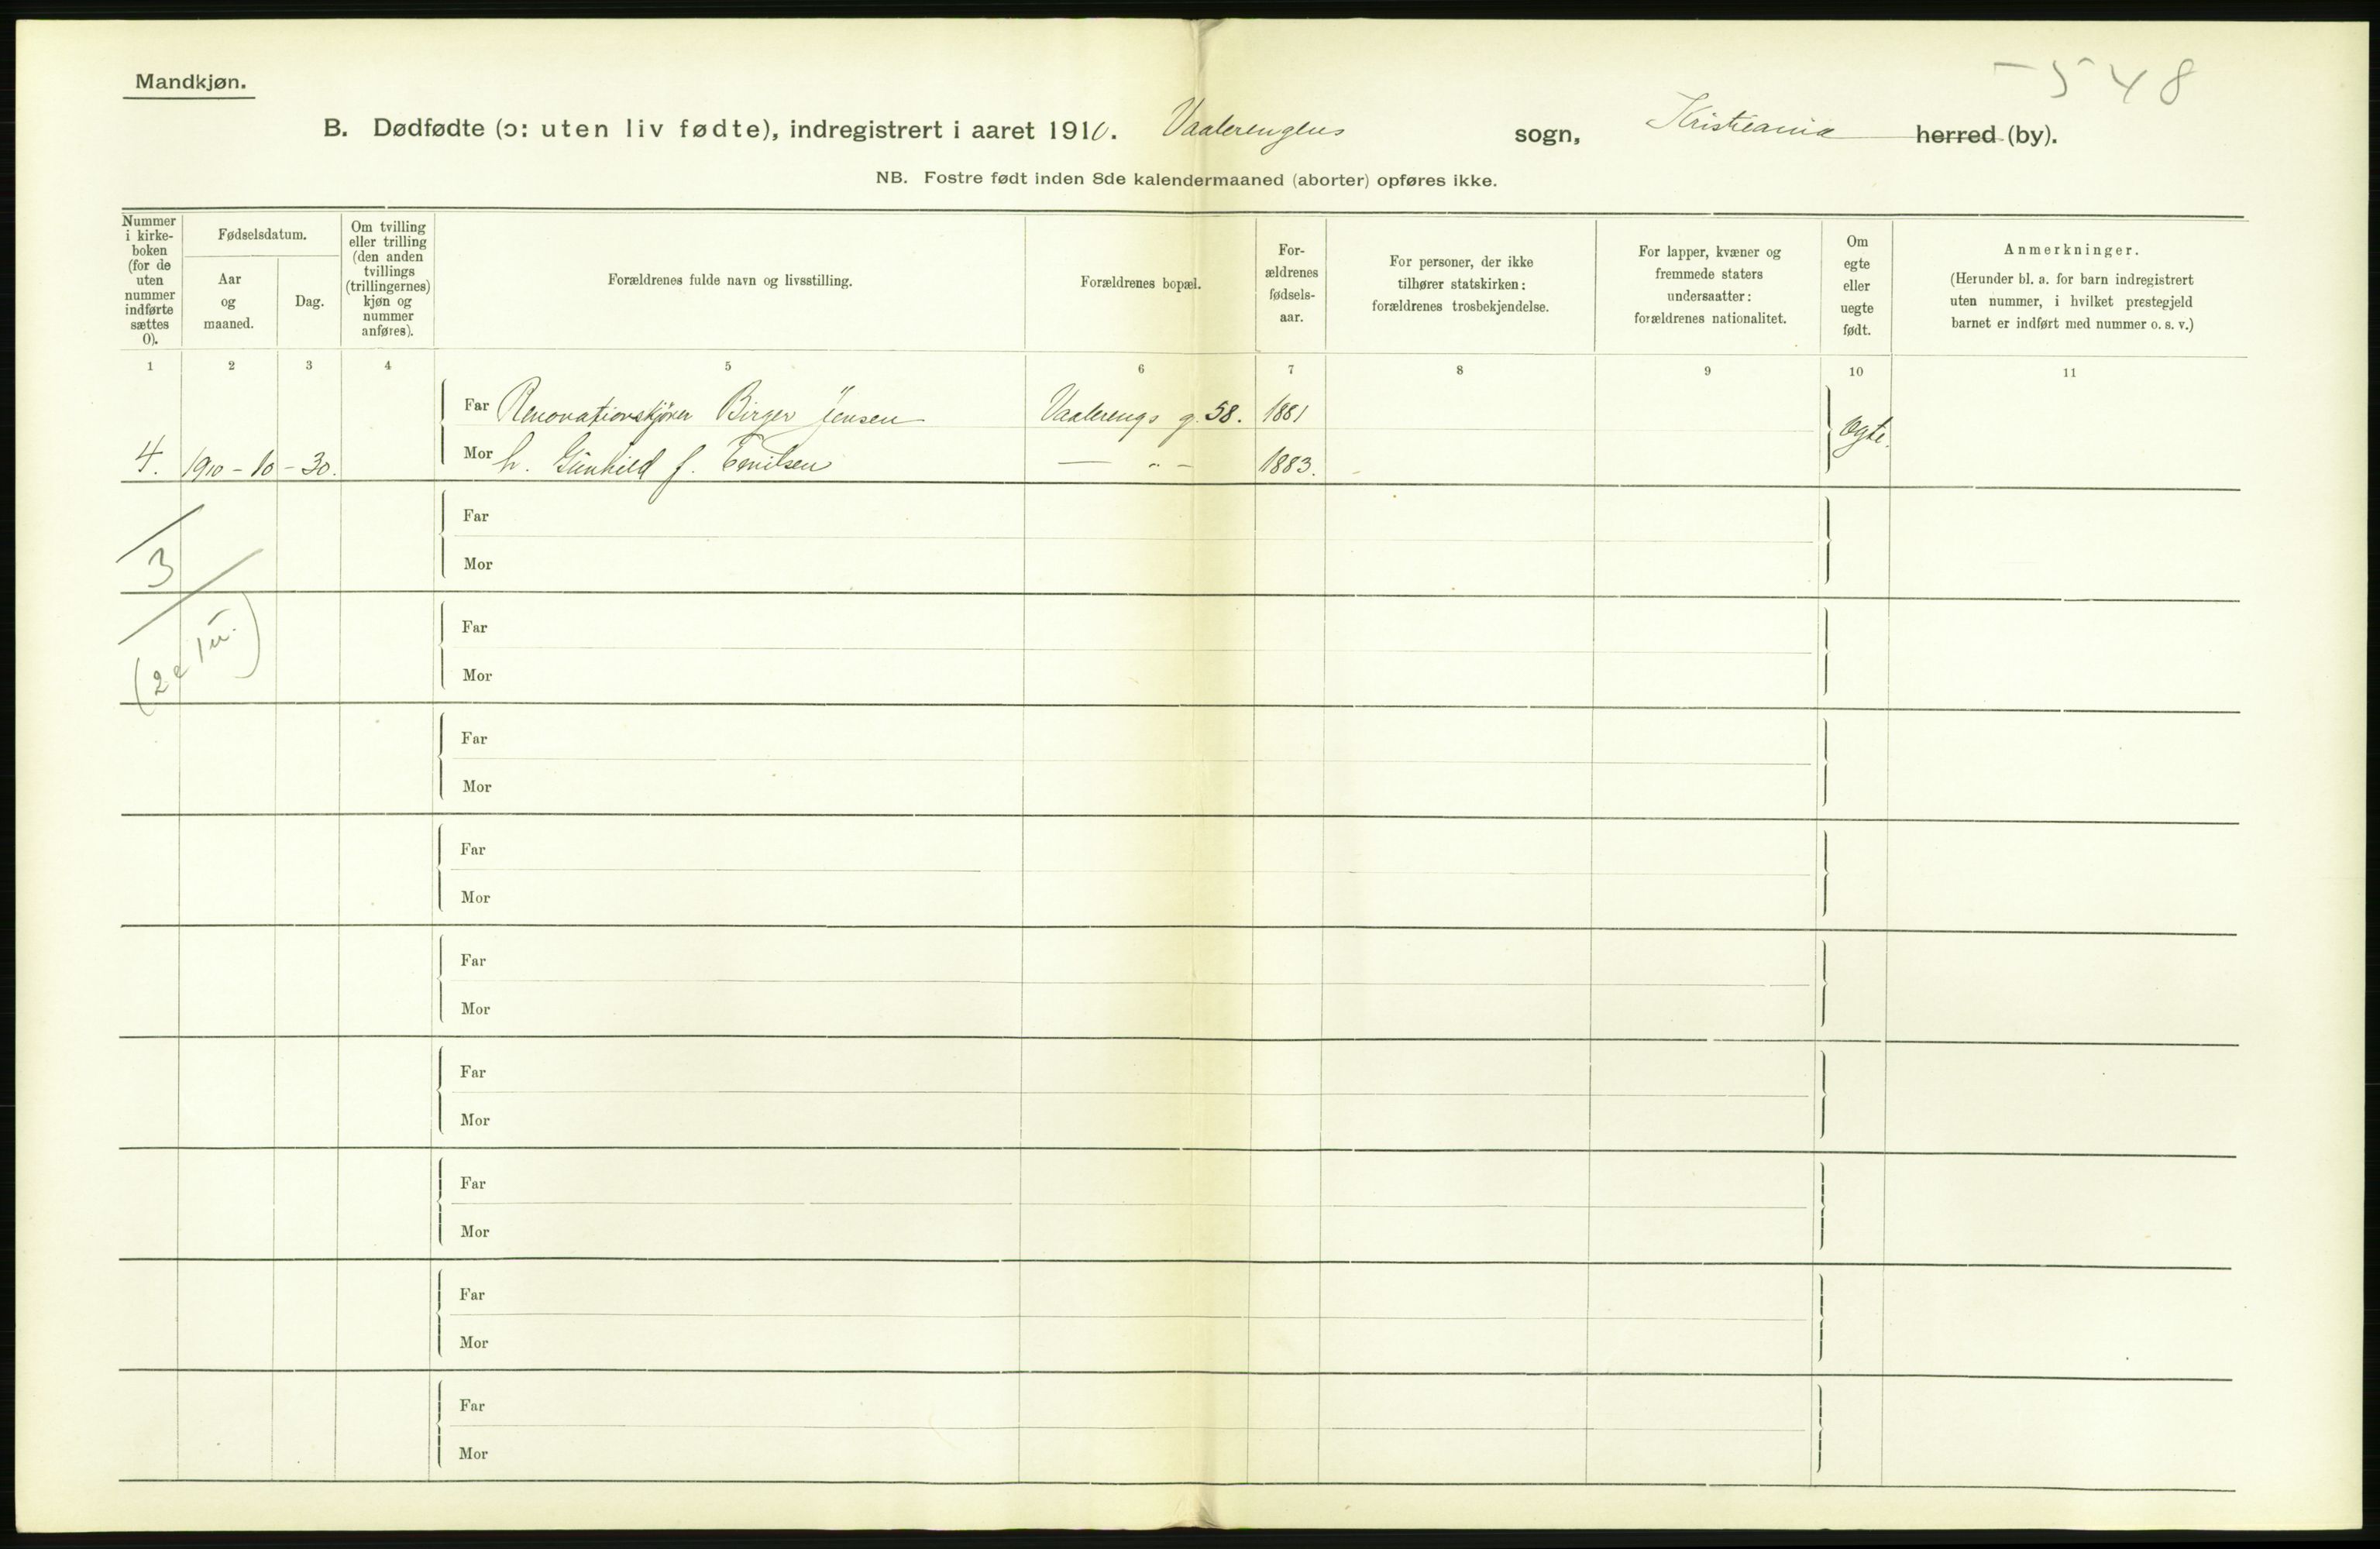 Mandkjøn.
-548
B. Dødfødte (ɔ: uten liv fødte), indregistrert i aaret 1910. Vaalerengens sogn, Kristiania herred (by).
NB. Fostre født inden 8de kalendermaaned (aborter) opføres ikke.
Nummer i kirke-boken (for de uten nummer indførte sættes 0).
Fødselsdatum.
Aar og maaned.
Dag.
Om tvilling eller trilling (den anden tvillings (trillingernes) kjøn og nummer anføres).
Forældrenes fulde navn og livsstilling.
Forældrenes bopæl.
For-ældrenes fødsels-aar.
For personer, der ikke tilhører statskirken: forældrenes trosbekjendelse.
For lapper, kvæner og fremmede staters undersaatter: forældrenes nationalitet.
Om egte eller uegte født.
Anmerkninger.
(Herunder bl. a. for barn indregistrert uten nummer, i hvilket prestegjeld barnet er indført med nummer o. s. v.)
1 2 3 4 5 6 7 8 9 10 11
Far Renovationskjører Birger Jensen Vaalerengs g. 58. 1881
Egte.
4. 1910 - 10 - 30. Mor h. Gunhild f. Emilsen — „ - 1883.
Far
3
Mor
(2e 1u.)
Far
Mor
Far
Mor
Far
Mor
Far
Mor
Far
Mor
Far
Mor
Far
Mor
Far
Mor